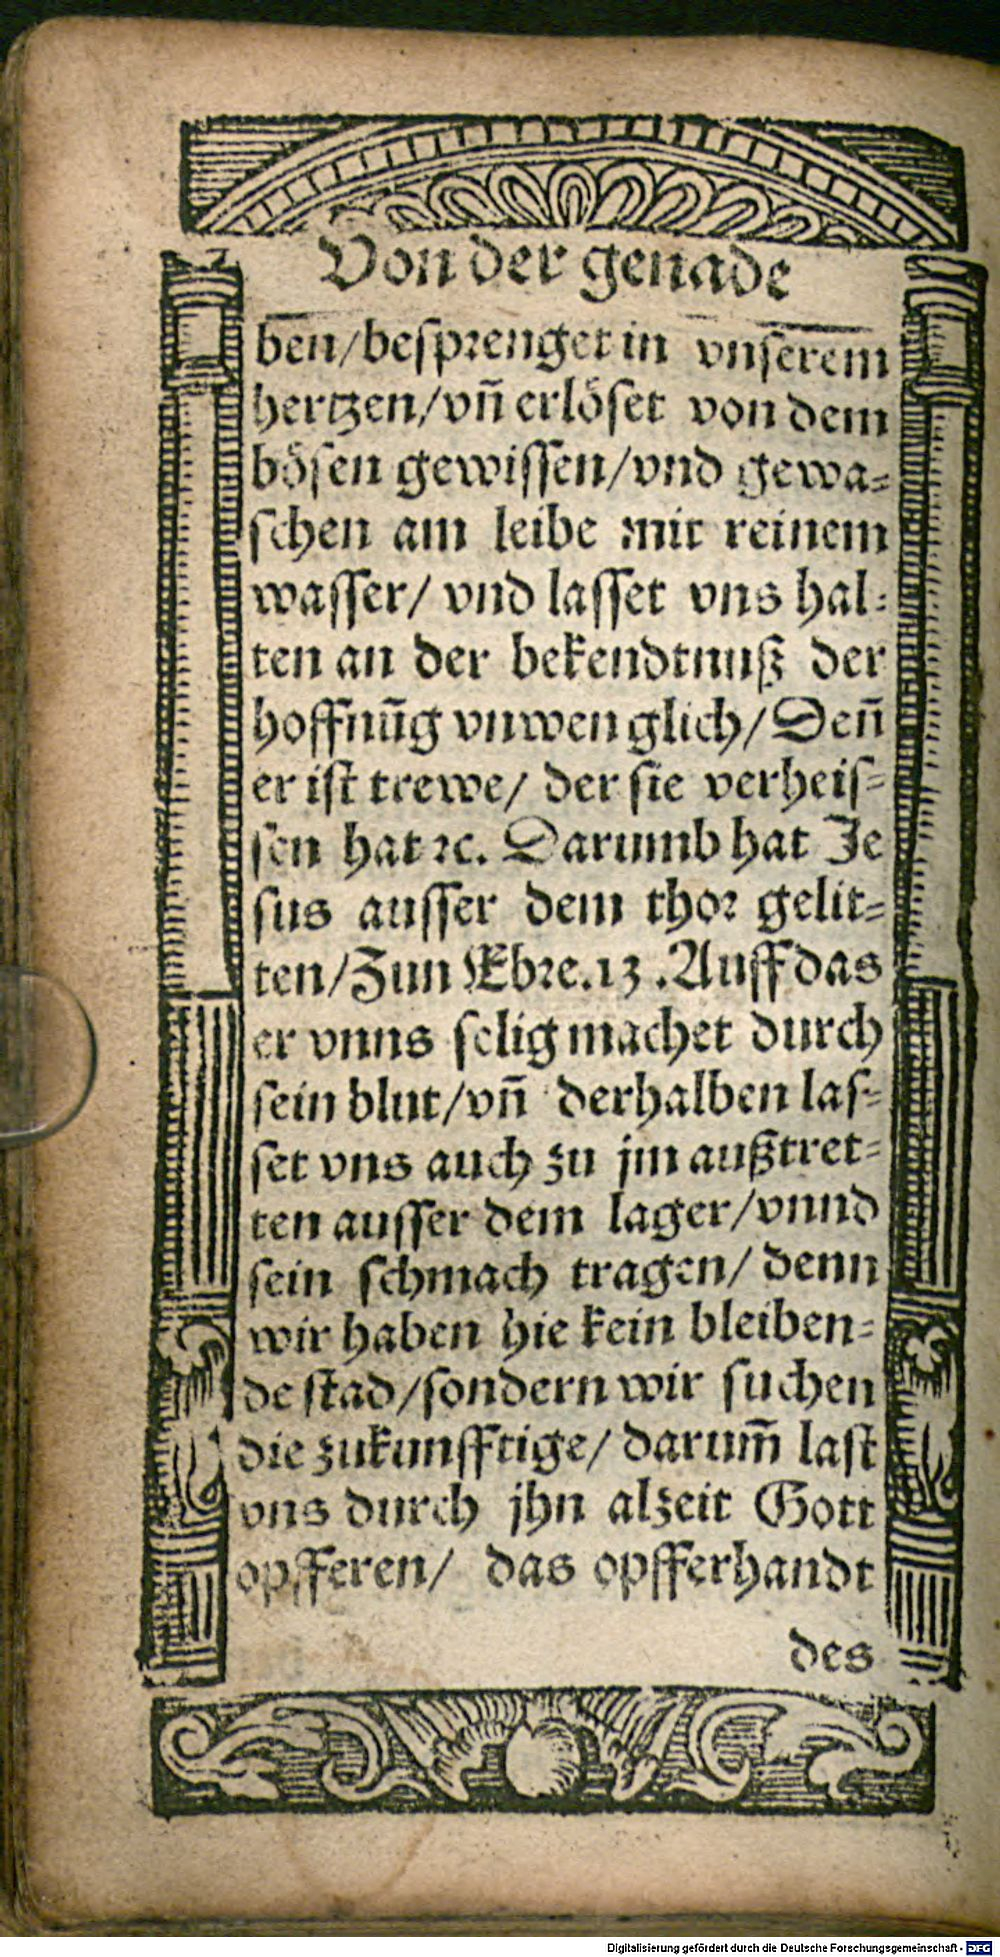 Von der genade
ben/besprenget in vnserem
hertzen/vn̄ erlöset von dem
bösen gewissen/vnd gewa⸗
schen am leibe mit reinem
wasser/ vnd lasset vns hal⸗
ten an der bekendtnuß der
hoffnūg vnwenglich/Den̄
er ist trewe/ der sie verheis⸗
sen hat ꝛc. Darumb hat Je
sus ausser dem thor gelit⸗
ten/Zun Ebre.13.Auff das
er vnns selig machet durch
sein blut/vn̄ derhalben las⸗
set vns auch zu jm außtret⸗
ten ausser dem lager/vnnd
sein schmach tragen/ denn
wir haben hie kein bleiben⸗
de stad/sondern wir suchen
die zukunfftige/ darum̄ last
vns durch jhn alzeit Gott
opfferen/ das opfferhandt
des
Digitalisierung gefördert durch die Deutsche Forschungsgemeinschaft - DFG